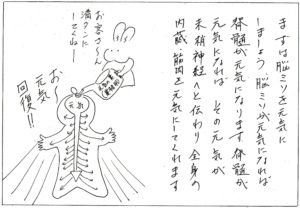 まずは脳ミソを元気に
しましょう 脳ミソが元気になれば
脊髄が元気になります 脊髄が
元気になれば その元気が
末梢神経へと伝わり全身の
内蔵、筋肉を元気にしてくれます
お客さん
満タンに
しとくね
元気
お〜
元気
回復!!